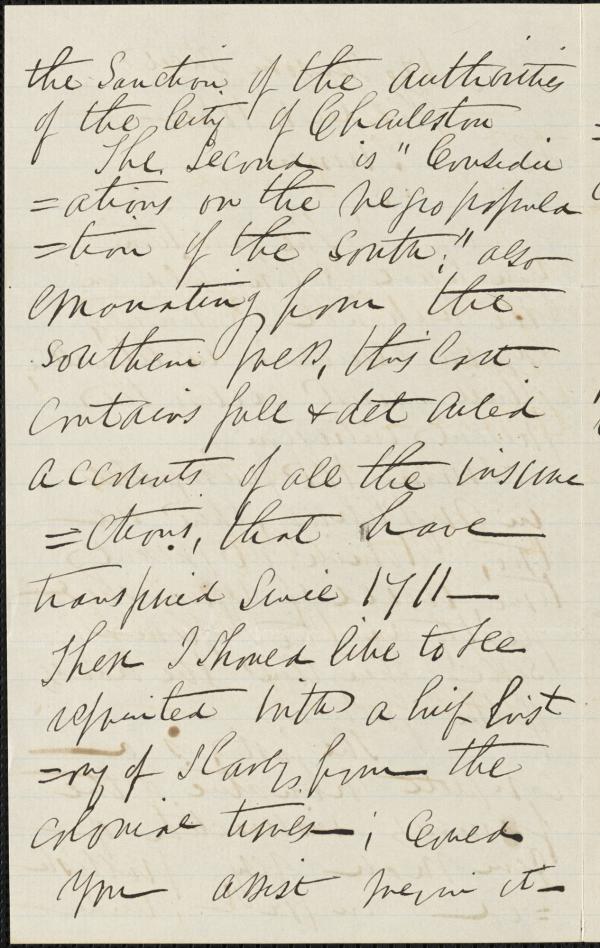 the Sanction of the authorities
of the City of Charleston
The Second is "Consider
=ations on the negro popula
=tion of the South," also
emanating from the
southern press, this last
contains full & detailed
accounts of all the insurre
=ctions, that have
transpired since 1711—
These I should like to see
reprinted with a brief hist
=ory of Slavery from the
colonial times—; Could
you assist me in it—